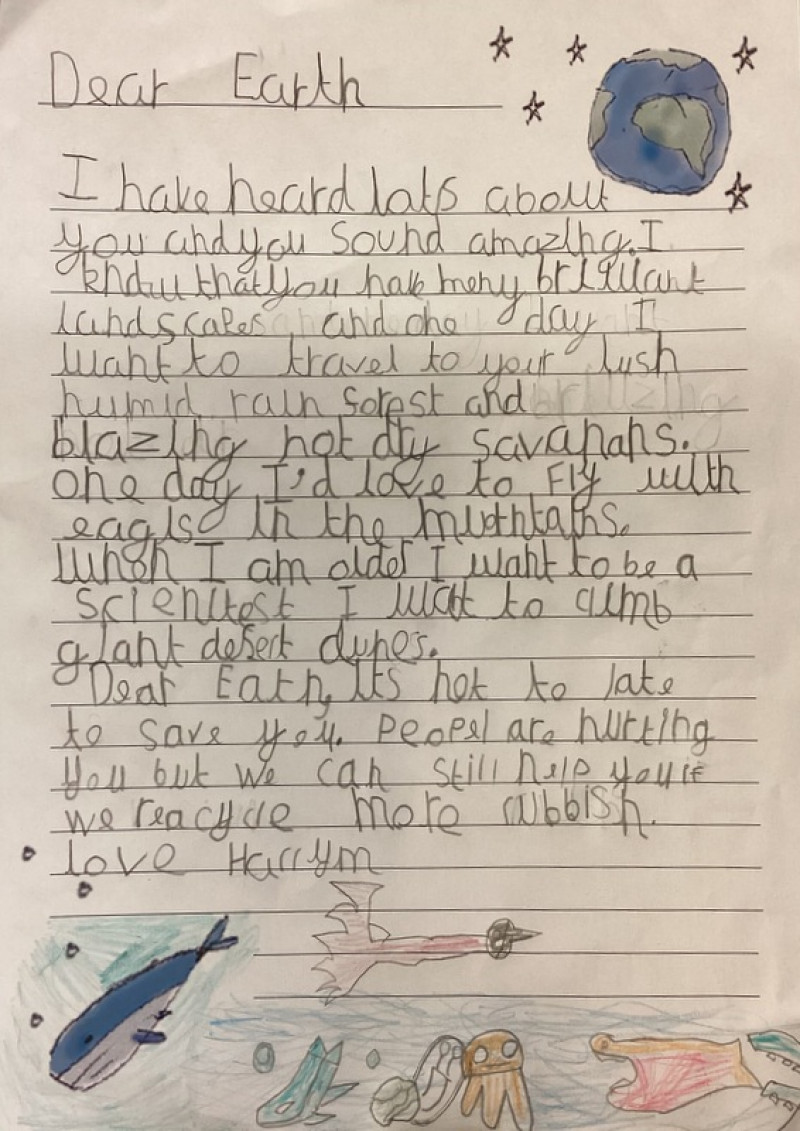 Dear Earth
I have heard lats about
you and you sound amazing. I
know that you have meny brilliant
landscapes and one day I
want to travel to your lush
humid rain forest and
blazing hot dry savanahs.
one day I'd love to Fly with
eagls in the muthtains.
When I am older I want to be a
scienitest I wat to climb
giant desert dunes.
Dear Eath, Its not to late
to save you. Peopel are hurting
You but we can still help you if
we reacycle more rubbish.
love Harrym